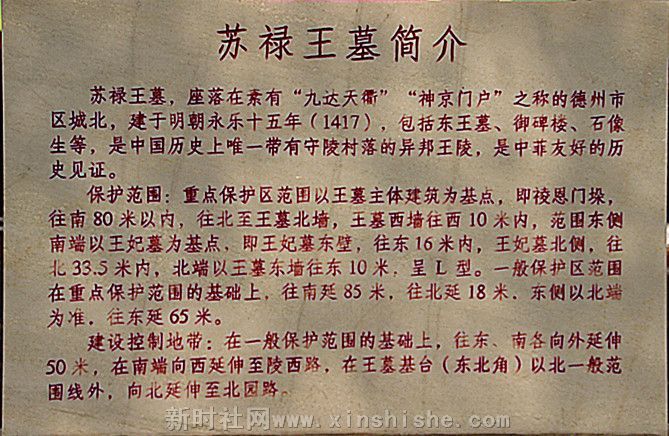 苏禄王墓简介
苏禄王墓，座落在素有“九达天衢”“神京门户”之称的德州市
区城北，建于明朝永乐十五年（1417），包括东王墓、御碑楼、石像
生等，是中国历史上唯一带有守陵村落的异邦王陵，是中菲友好的历
史见证。
保护范围：重点保护区范围以王墓主体建筑为基点，即祾恩门垛，
往南80米以内，往北至王墓北墙，王墓西墙往西10米内，范围东侧
南端以王妃墓为基点，即王妃墓东壁，往东16米内，王妃墓北侧，往
北33.5米内，北端以王墓东墙往东10米，呈L型。一般保护区范围
在重点保护范围的基础上，往南延85米，往北延18米．东侧以北端
为准，往东延65米。
建设控制地带：在一般保护范围的基础上，往东、南各向外延伸
50米，在南端向西延伸至陵西路，在王墓基台（东北角）以北一般范
围线外，向北延伸至北园路。
新时社网www.xinshishe.com